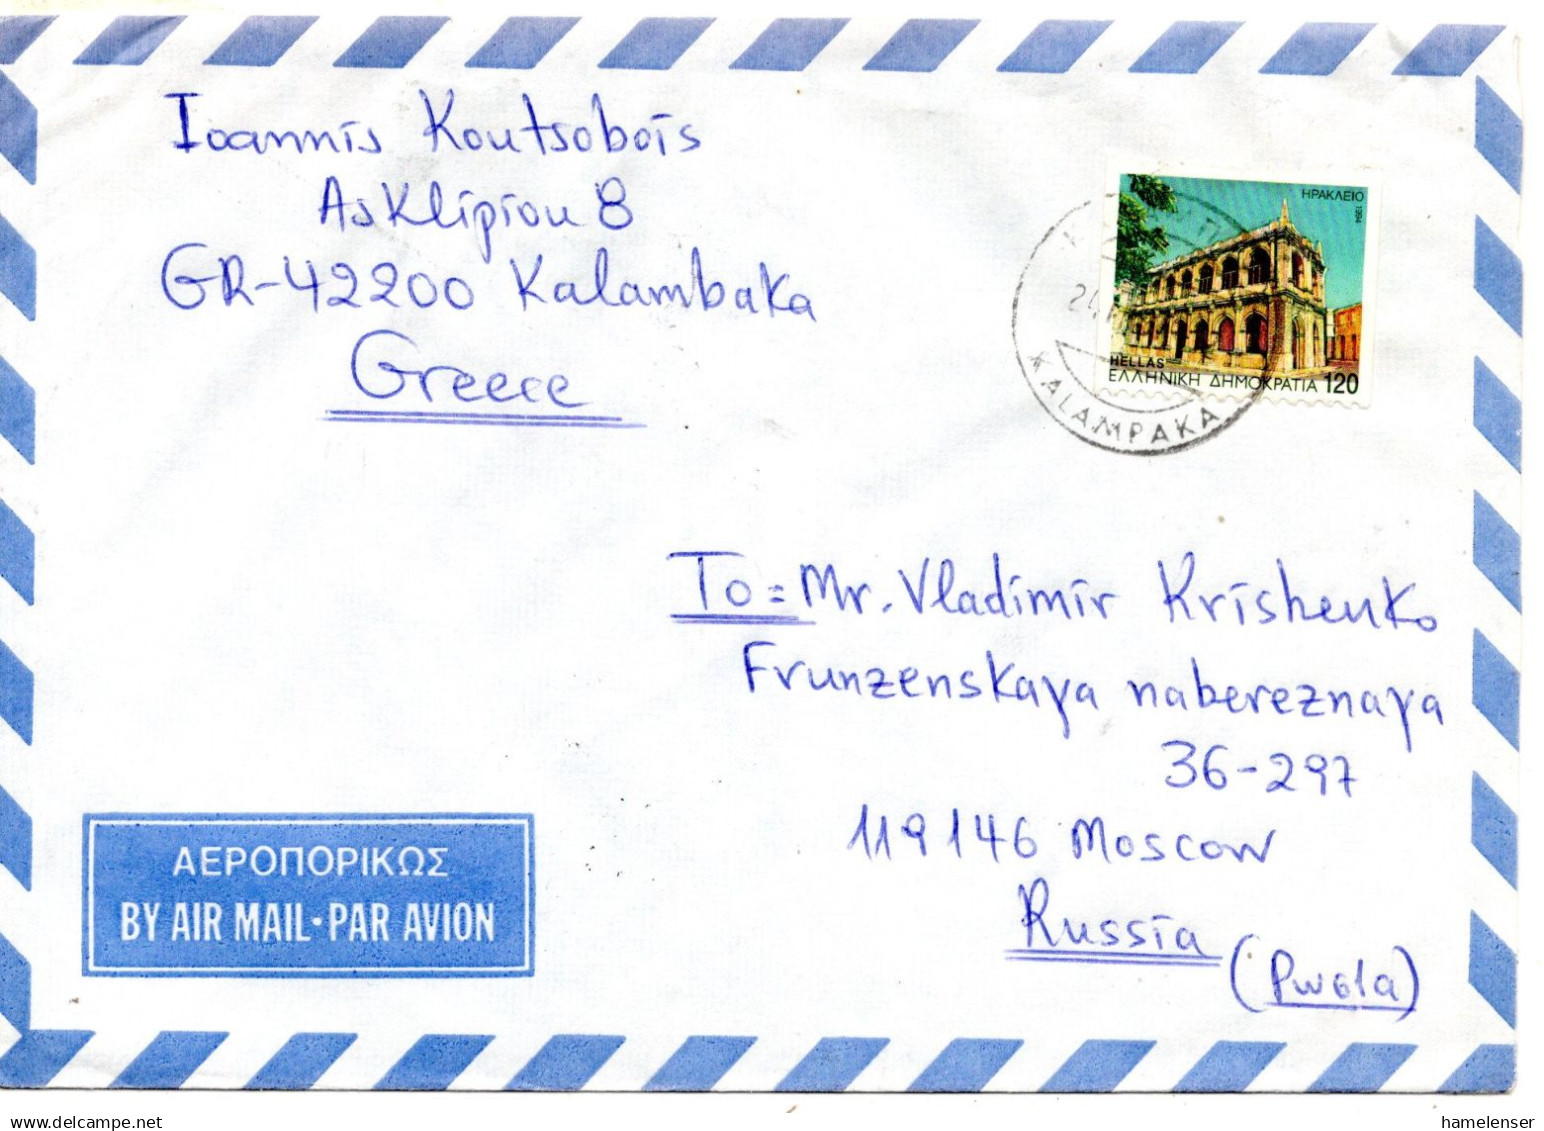 Ioannis Koutsobois
Asklipiou 8
GR-42200 Kalambaka
Greece
ΗΡΑΚΛΕΙΟ
1994
HELLAS
ΕΛΛΗΝΙΚΗ ΔΗΜΟΚΡΑΤΙΑ 120
KALAMPAKA
To = Mr. Vladimir Krishenko
Frunzenskaya nabereznaya
36-297
119146 Moscow
Russia
(Ρωσία)
ΑΕΡΟΠΟΡΙΚΩΣ
BY AIR MAIL · PAR AVION
www.delcampe.net
hamelenser